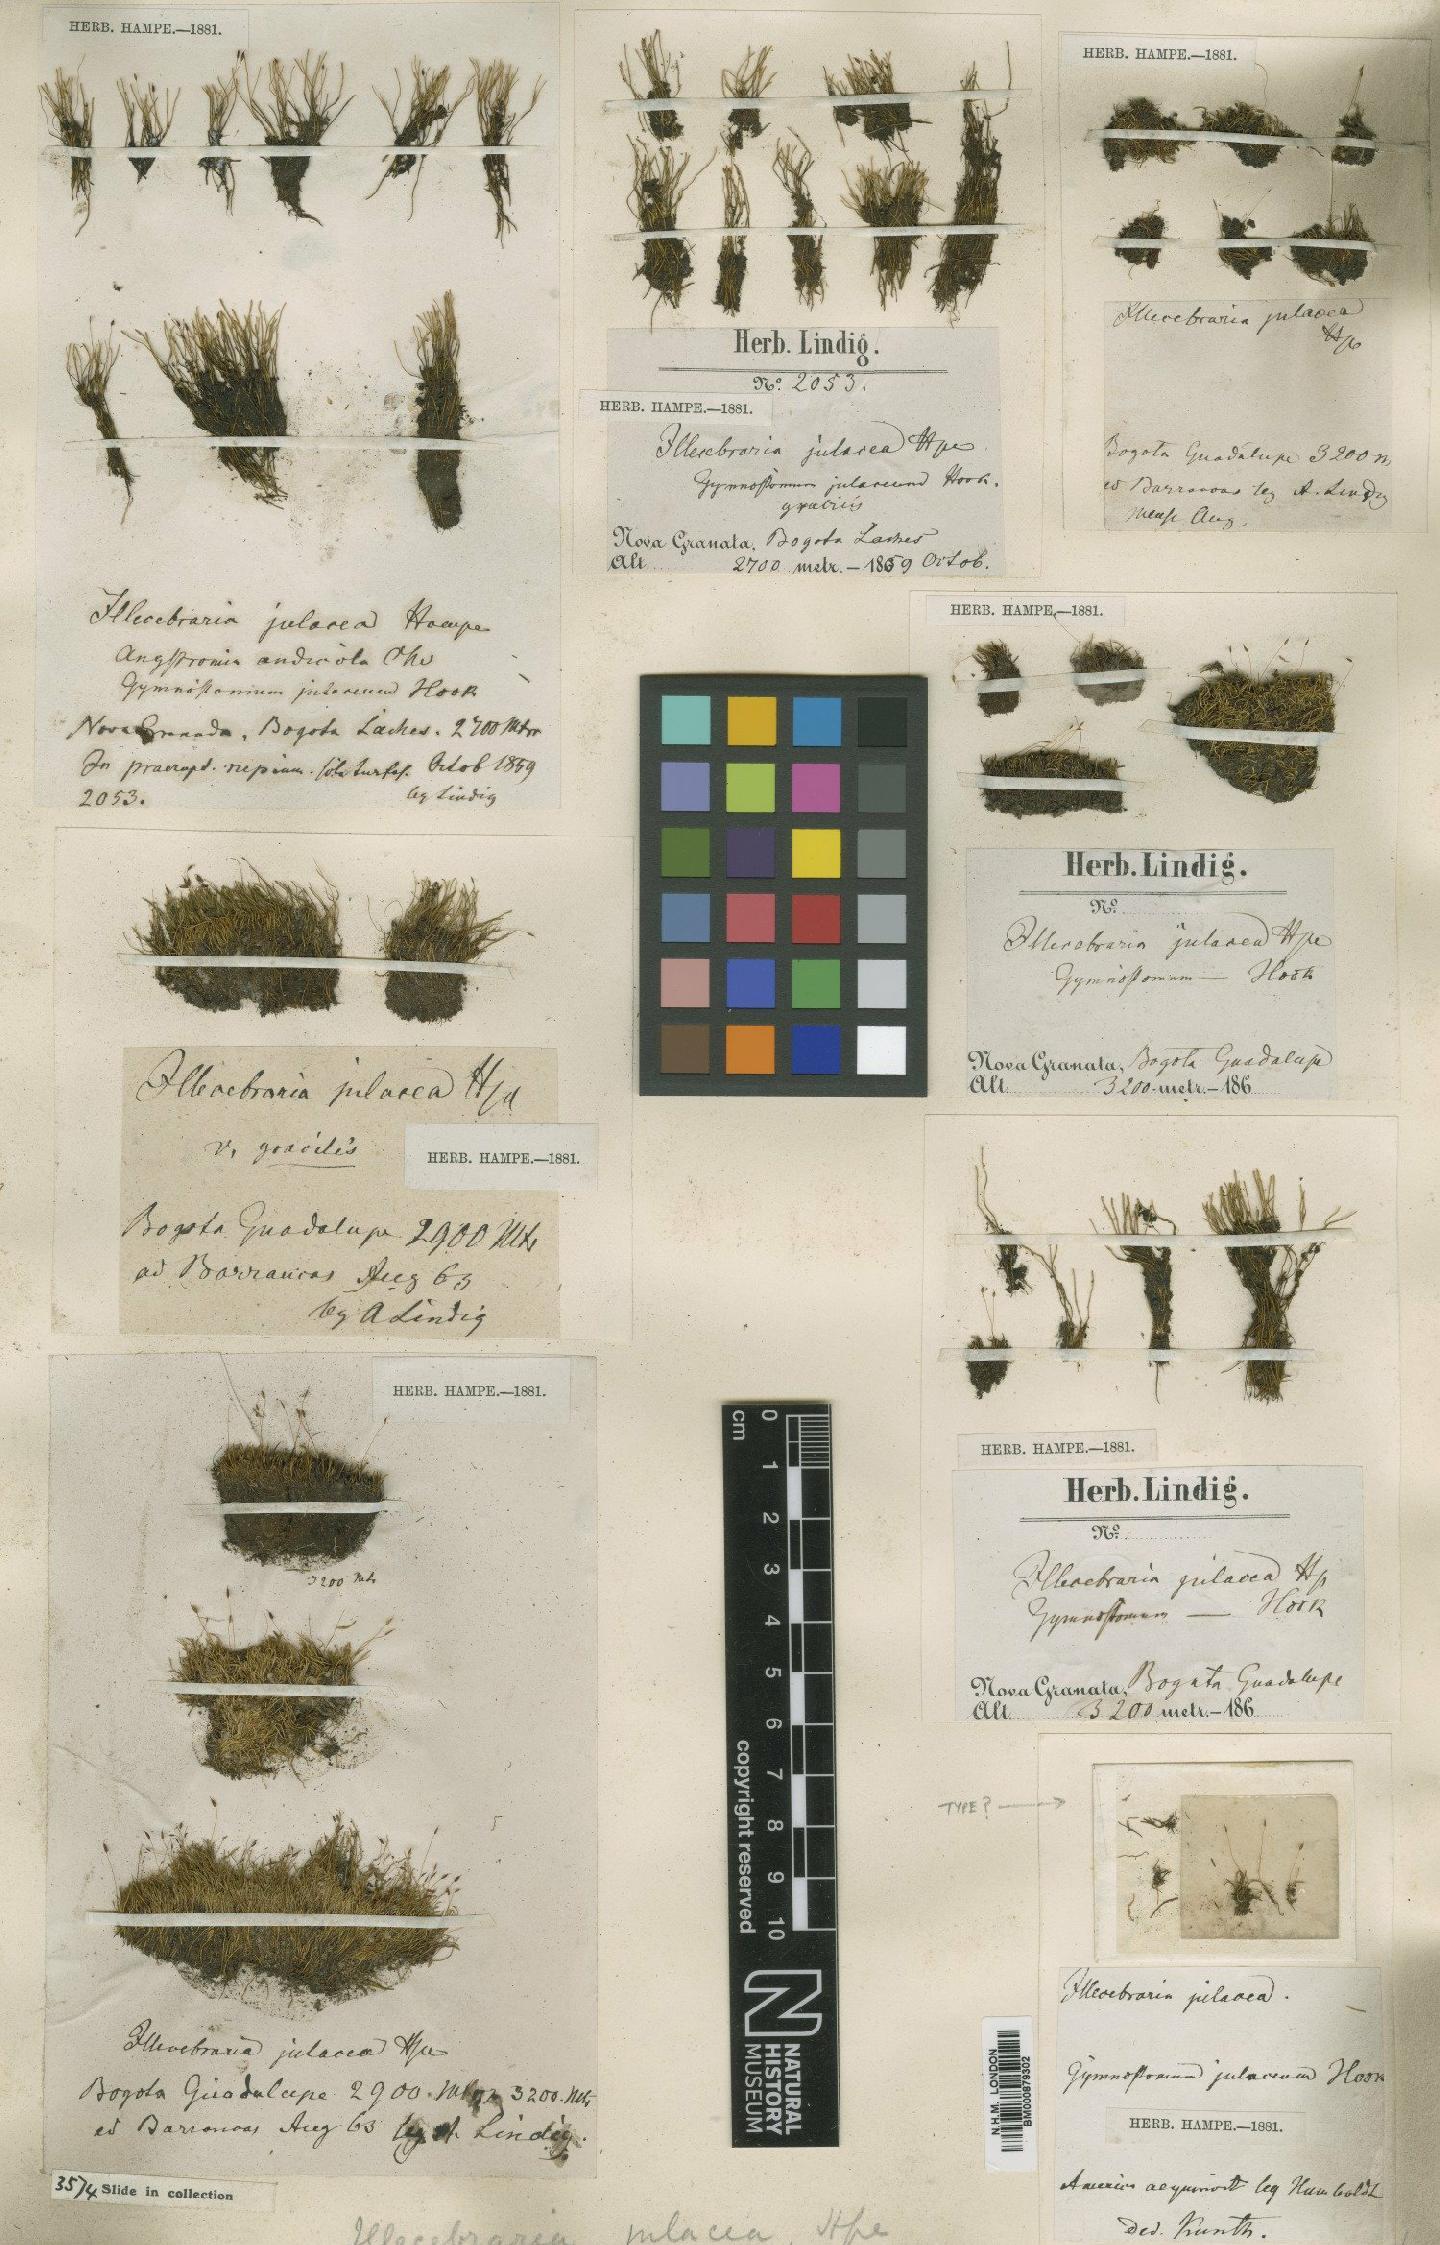 HERB. HAMPE.—1881.
Illecebraria julacea Hampe
Angstromia andicola
Gymnostomum julaceum Hook
Nova Granada, Bogota Laches. 2700 Mtr
In praerupt. sepium. Octob 1859
2053. leg Lindig
Herb. Lindig.
No. 2053.
HERB. HAMPE.—1881.
Illecebraria julacea Hpe
Gymnostomum julaceum Hook.
gracilis
Nova Granata, Bogota Laches
Alt 2700 metr.—1859 Octob.
HERB. HAMPE.—1881.
Illecebraria julacea
Hpe
Bogota Guadalupe 3200 m
ad Barrancas leg A. Lindig
mense Aug.
HERB. HAMPE.—1881.
Herb. Lindig.
No.
Illecebraria julacea Hpe
Gymnostomum — Hook
Nova Granata, Bogota Guadalupe
Alt 3200 metr.—186
Illecebraria julacea Hpe
v. gracilis
HERB. HAMPE.—1881.
Bogota Guadalupe 2900 Mts
ad Barrancas Aug 63
leg A Lindig
HERB. HAMPE.—1881.
Herb. Lindig.
No.
Illecebraria julacea Hp
Gymnostomum — Hook
Nova Granata, Bogota Guadalupe
Alt 3200 metr.—186
HERB. HAMPE.—1881.
3200 Mts
Illecebraria julacea Hpe
Bogota Guadalupe 2900 3200 Mts
ad Barrancas Aug 63 leg A. Lindig.
3574 Slide in collection
cm 0 1 2 3 4 5 6 7 8 9 10
copyright reserved
NATURAL
HISTORY
MUSEUM
TYPE? →
N.H.M. LONDON
BM000879302
Illecebraria julacea.
Gymnostomum julaceum Hook
HERB. HAMPE.—1881.
America aequinoct leg Humboldt
Ded. Kunth.
Illecebraria julacea, Hpe